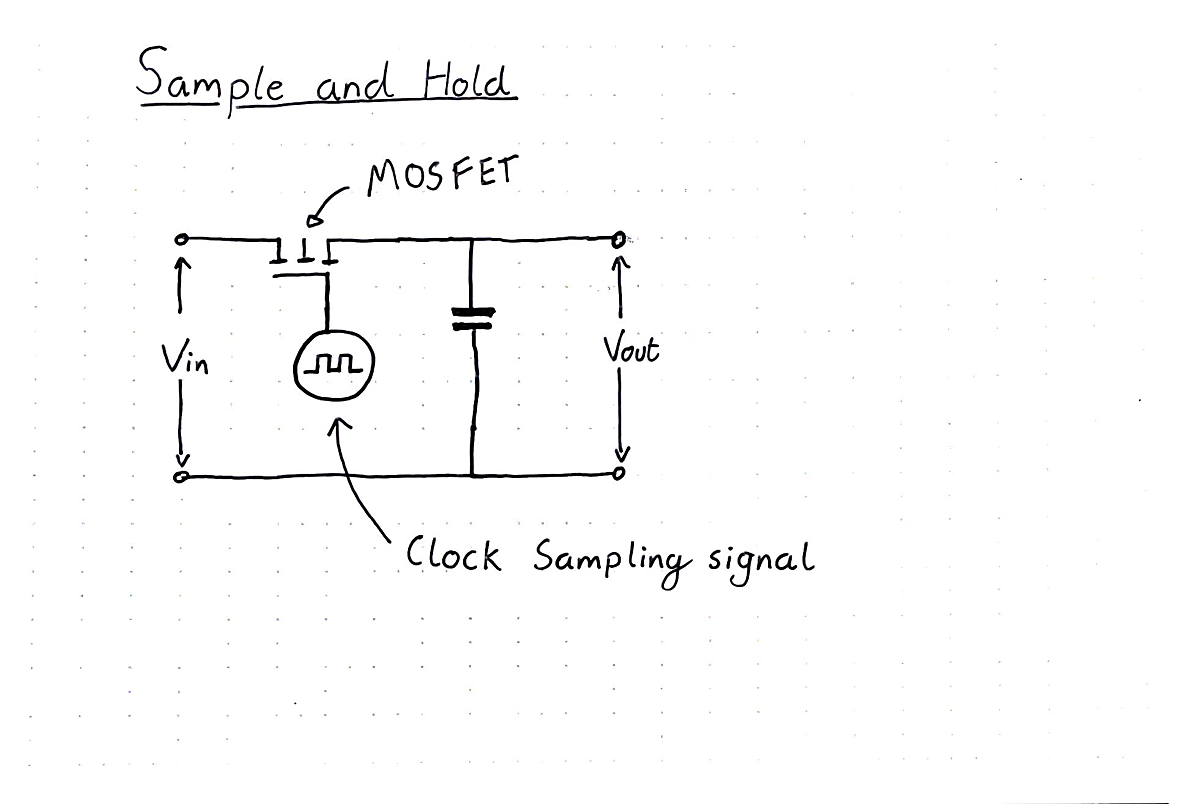 Sample and Hold
MOSFET
Vin
Vout
Clock Sampling signal